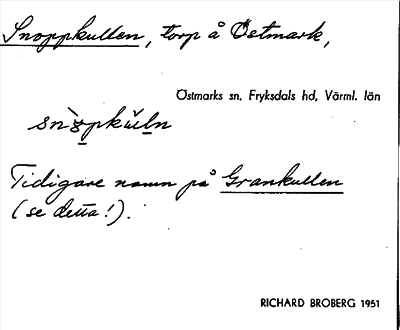 Snoppkullen, torp å Östmark,
Östmarks sn, Fryksdals hd, Värml. län
Tidigare namn på Grankullen
(se detta!).
RICHARD BROBERG 1951